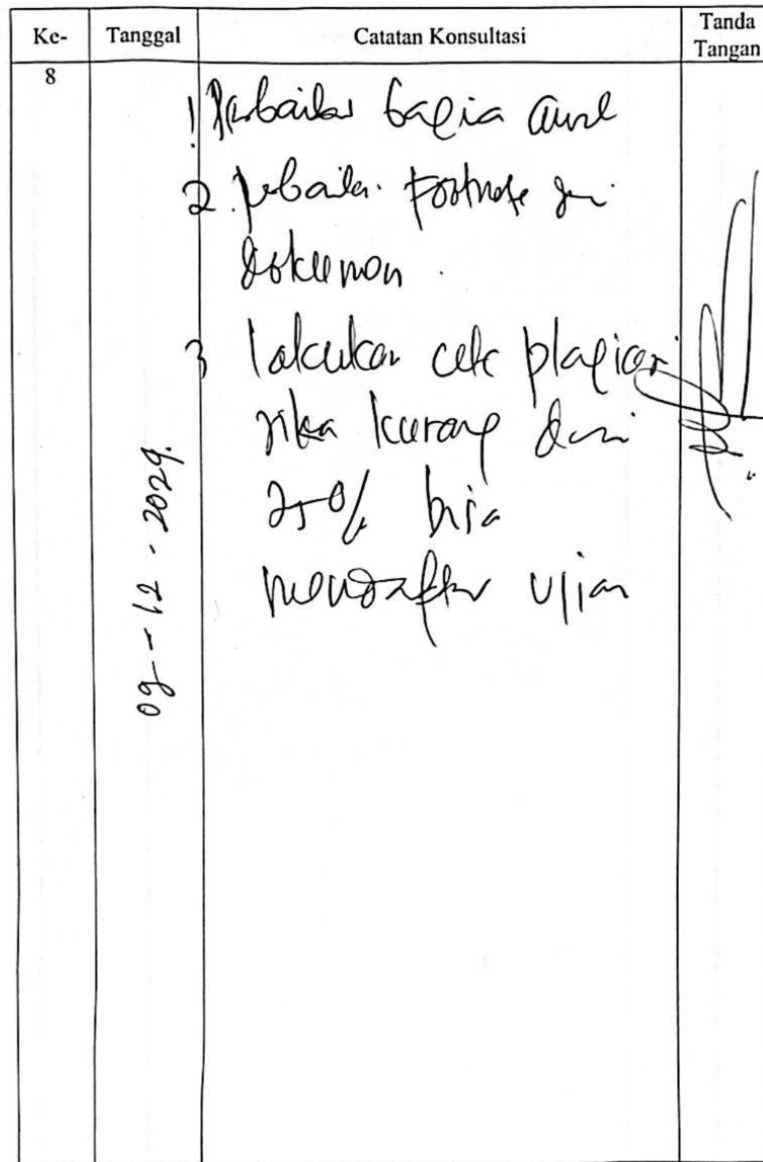 Ke- Tanggal Catatan Konsultasi Tanda Tangan
8
1 Perbaiki bagia awal
2. perbaiki Footnote dan
dokumen.
3 lakukan cek plagiasi
jika kurang dari
25% bisa
mendaftar ujian
09-12-2024.